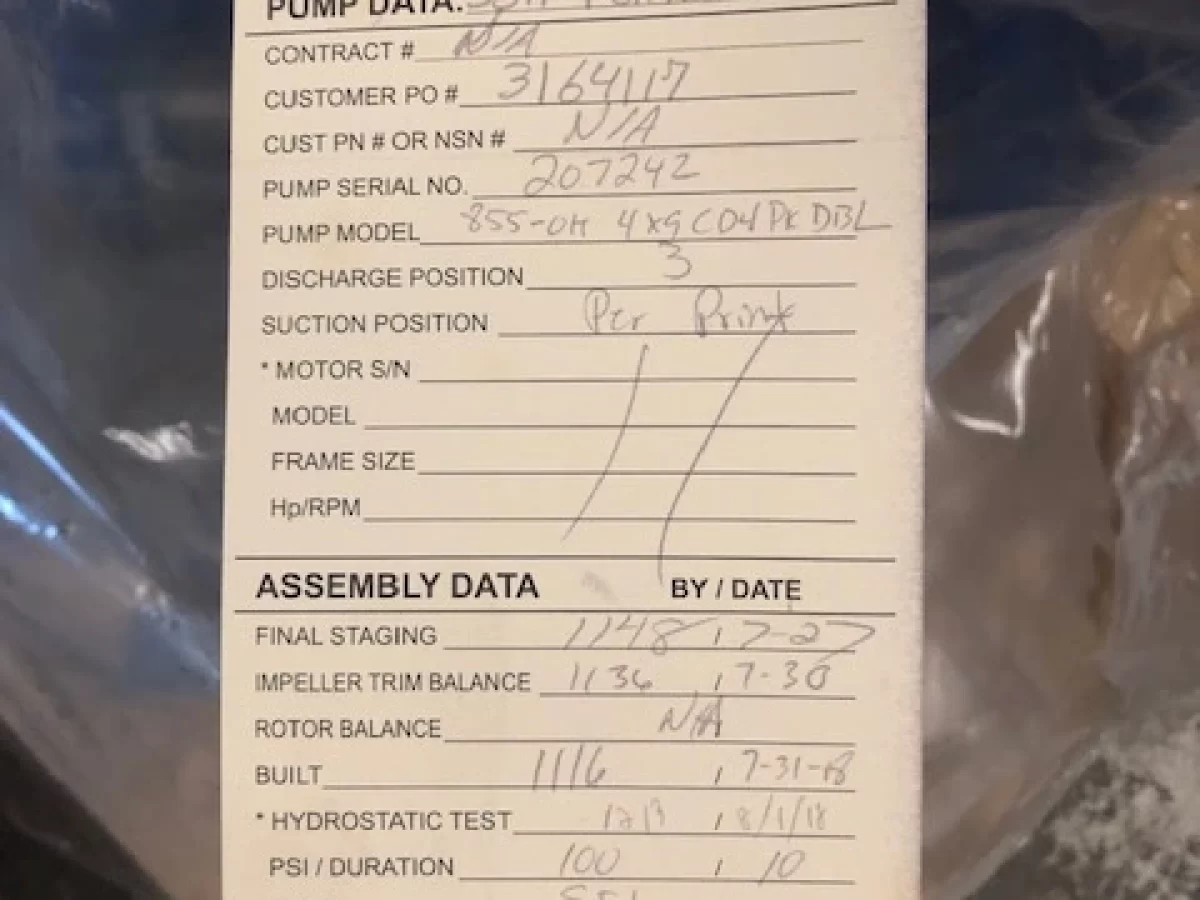 PUMP DATA:
CONTRACT # N/A
CUSTOMER PO # 3164117
CUST PN # OR NSN # N/A
PUMP SERIAL NO. 207242
PUMP MODEL 855-OH 4x9 CO4PK DBL
DISCHARGE POSITION 3
SUCTION POSITION Per Print
* MOTOR S/N
MODEL
FRAME SIZE
Hp/RPM
ASSEMBLY DATA BY / DATE
FINAL STAGING 1148 / 7-27
IMPELLER TRIM BALANCE 1136 / 7-30
ROTOR BALANCE N/A
BUILT 1116 / 7-31-18
* HYDROSTATIC TEST 1213 / 8/1/18
PSI / DURATION 100 / 10